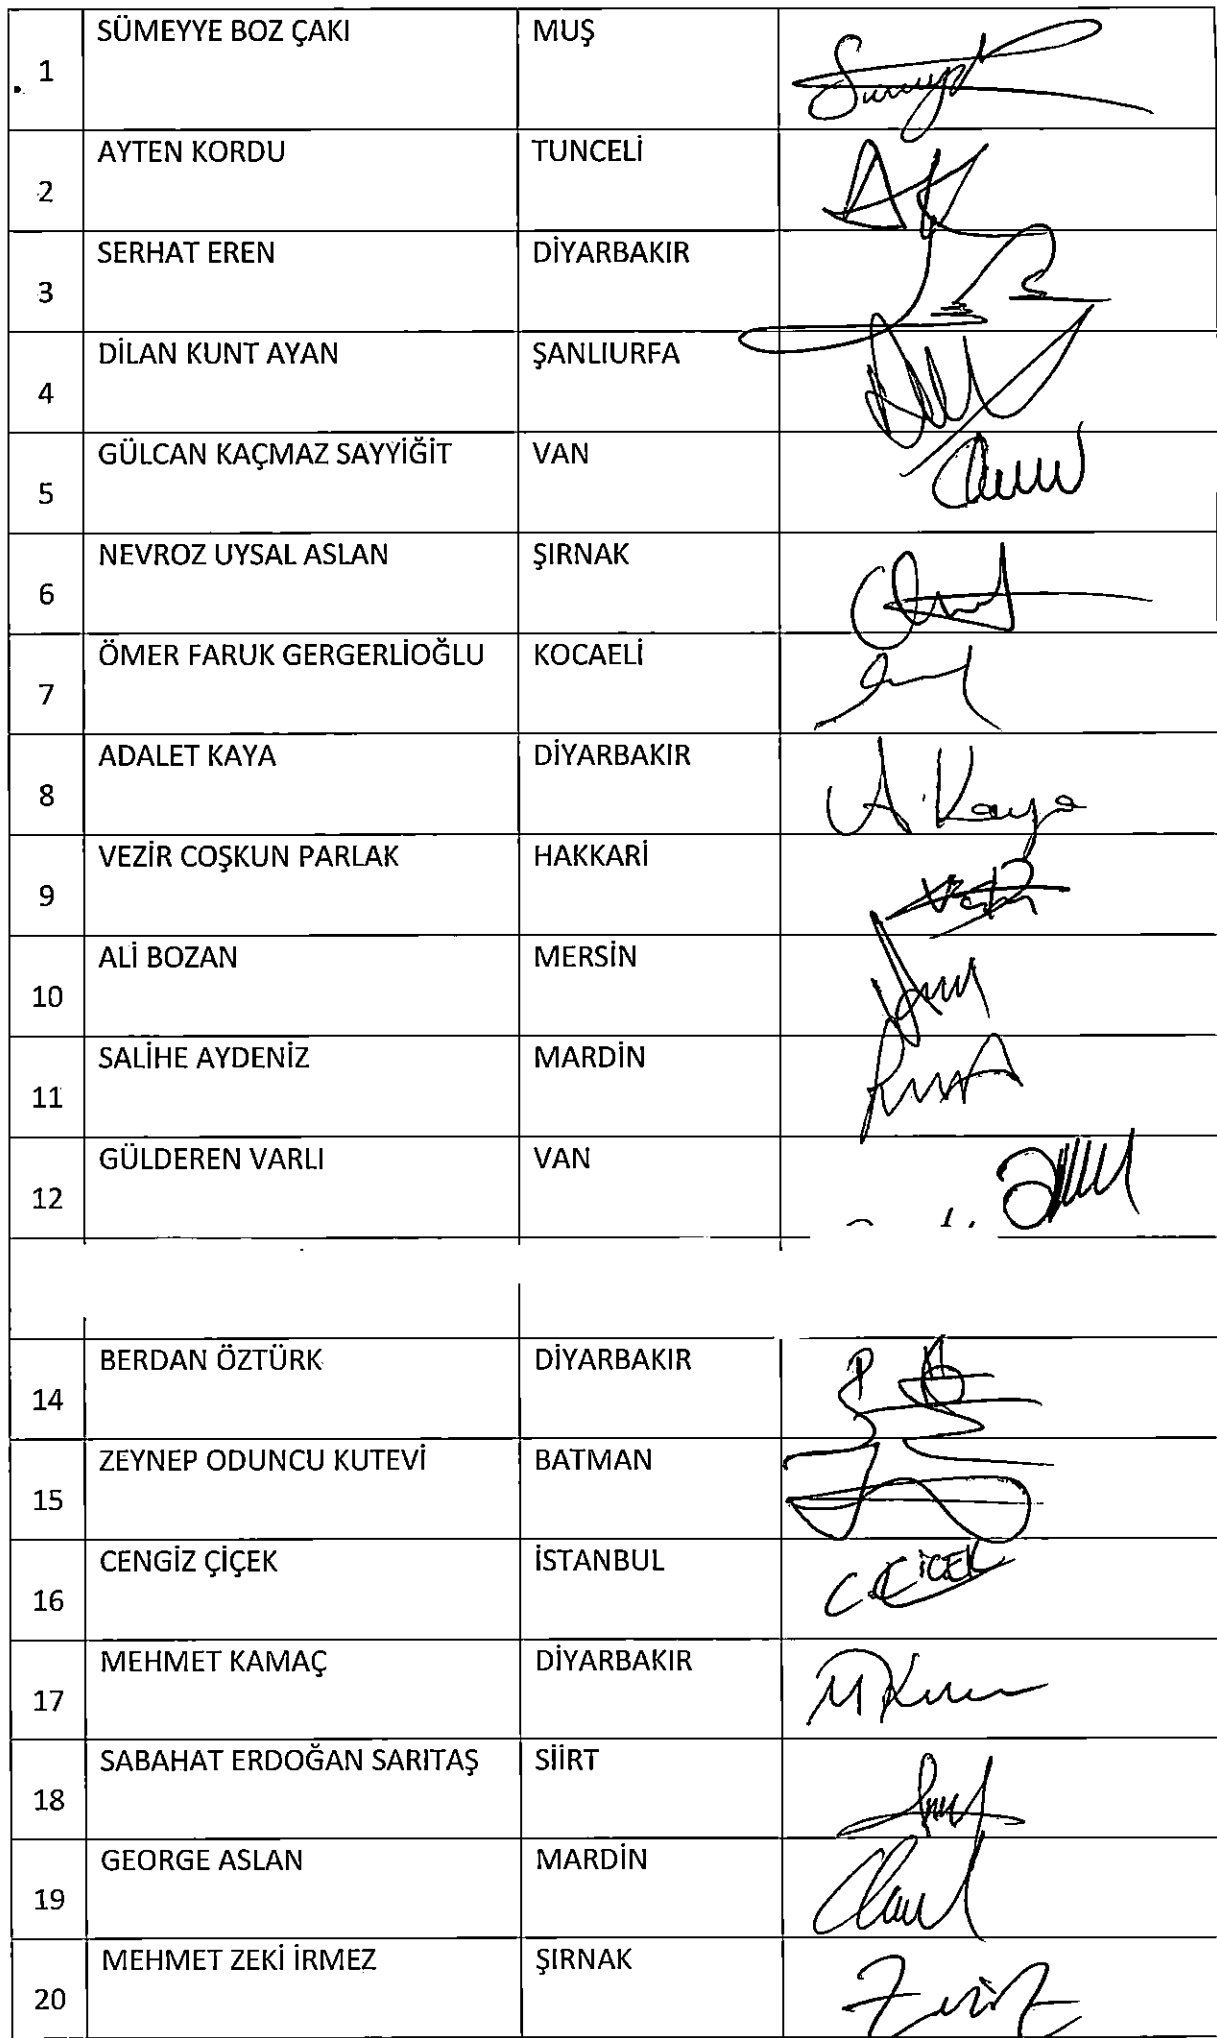 1 SÜMEYYE BOZ ÇAKI MUŞ
2 AYTEN KORDU TUNCELİ
3 SERHAT EREN DİYARBAKIR
4 DİLAN KUNT AYAN ŞANLIURFA
5 GÜLCAN KAÇMAZ SAYYİĞİT VAN
6 NEVROZ UYSAL ASLAN ŞIRNAK
7 ÖMER FARUK GERGERLİOĞLU KOCAELİ
8 ADALET KAYA DİYARBAKIR A. Kaya
9 VEZİR COŞKUN PARLAK HAKKARİ
10 ALİ BOZAN MERSİN
11 SALİHE AYDENİZ MARDİN
12 GÜLDEREN VARLI VAN
14 BERDAN ÖZTÜRK DİYARBAKIR
15 ZEYNEP ODUNCU KUTEVİ BATMAN
16 CENGİZ ÇİÇEK İSTANBUL C. ÇİÇEK
17 MEHMET KAMAÇ DİYARBAKIR
18 SABAHAT ERDOĞAN SARITAŞ SİİRT
19 GEORGE ASLAN MARDİN
20 MEHMET ZEKİ İRMEZ ŞIRNAK